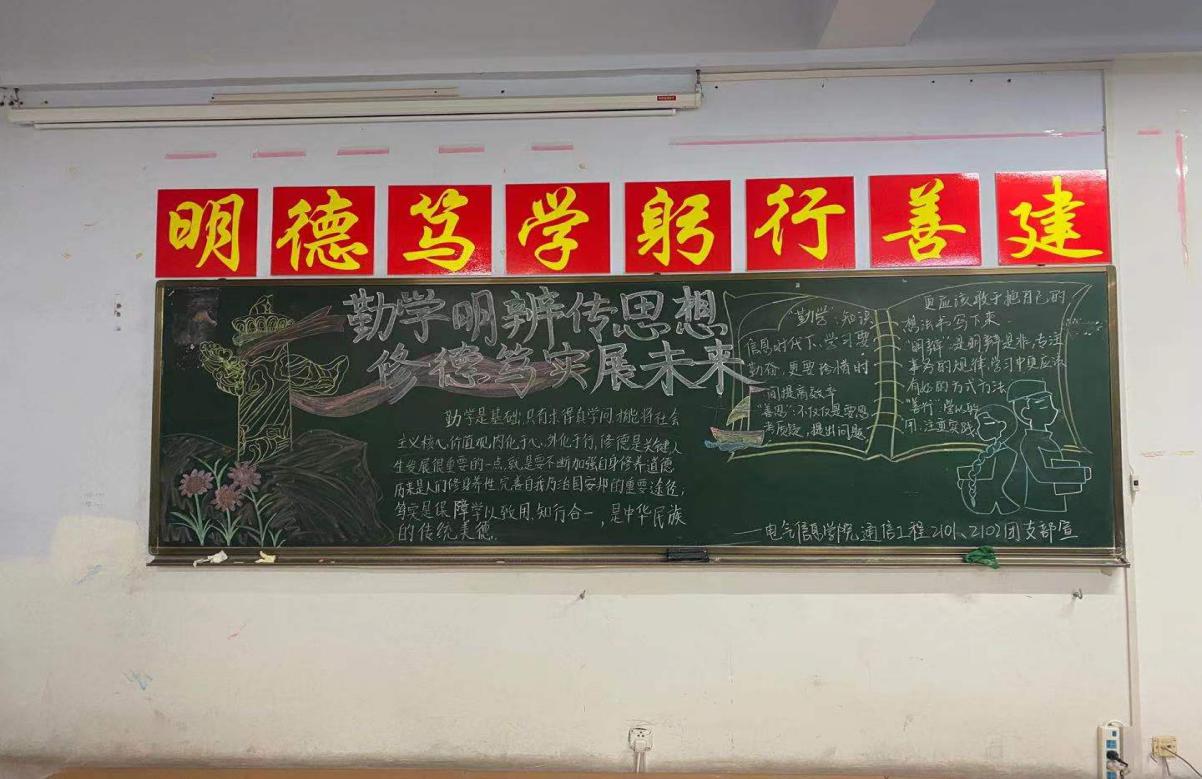 明德笃学躬行善建
勤学明辨传思想
修德笃实展未来
勤学是基础,只有求得真学问才能将社会
主义核心价值观内化于心、外化于行,修德是关键,人
生发展很重要的一点,就是要不断加强自身修养道德
历来是人们修身养性,完善自我乃治国安邦的重要途径,
笃实是保障学以致用,知行合一,是中华民族
的传统美德.
"勤学":知识
信息时代下,学习要
勤奋,更要珍惜时
间提高效率
"善思":不仅仅是要思
考质疑,提出问题,
更应该敢于把自己的
想法书写下来
"明辨"是明辨是非,专注
事务的规律,学习中更应该
有的方式方法
"善行"
用,注重实践
——电气信息学院通信工程2101、2102团支部宣